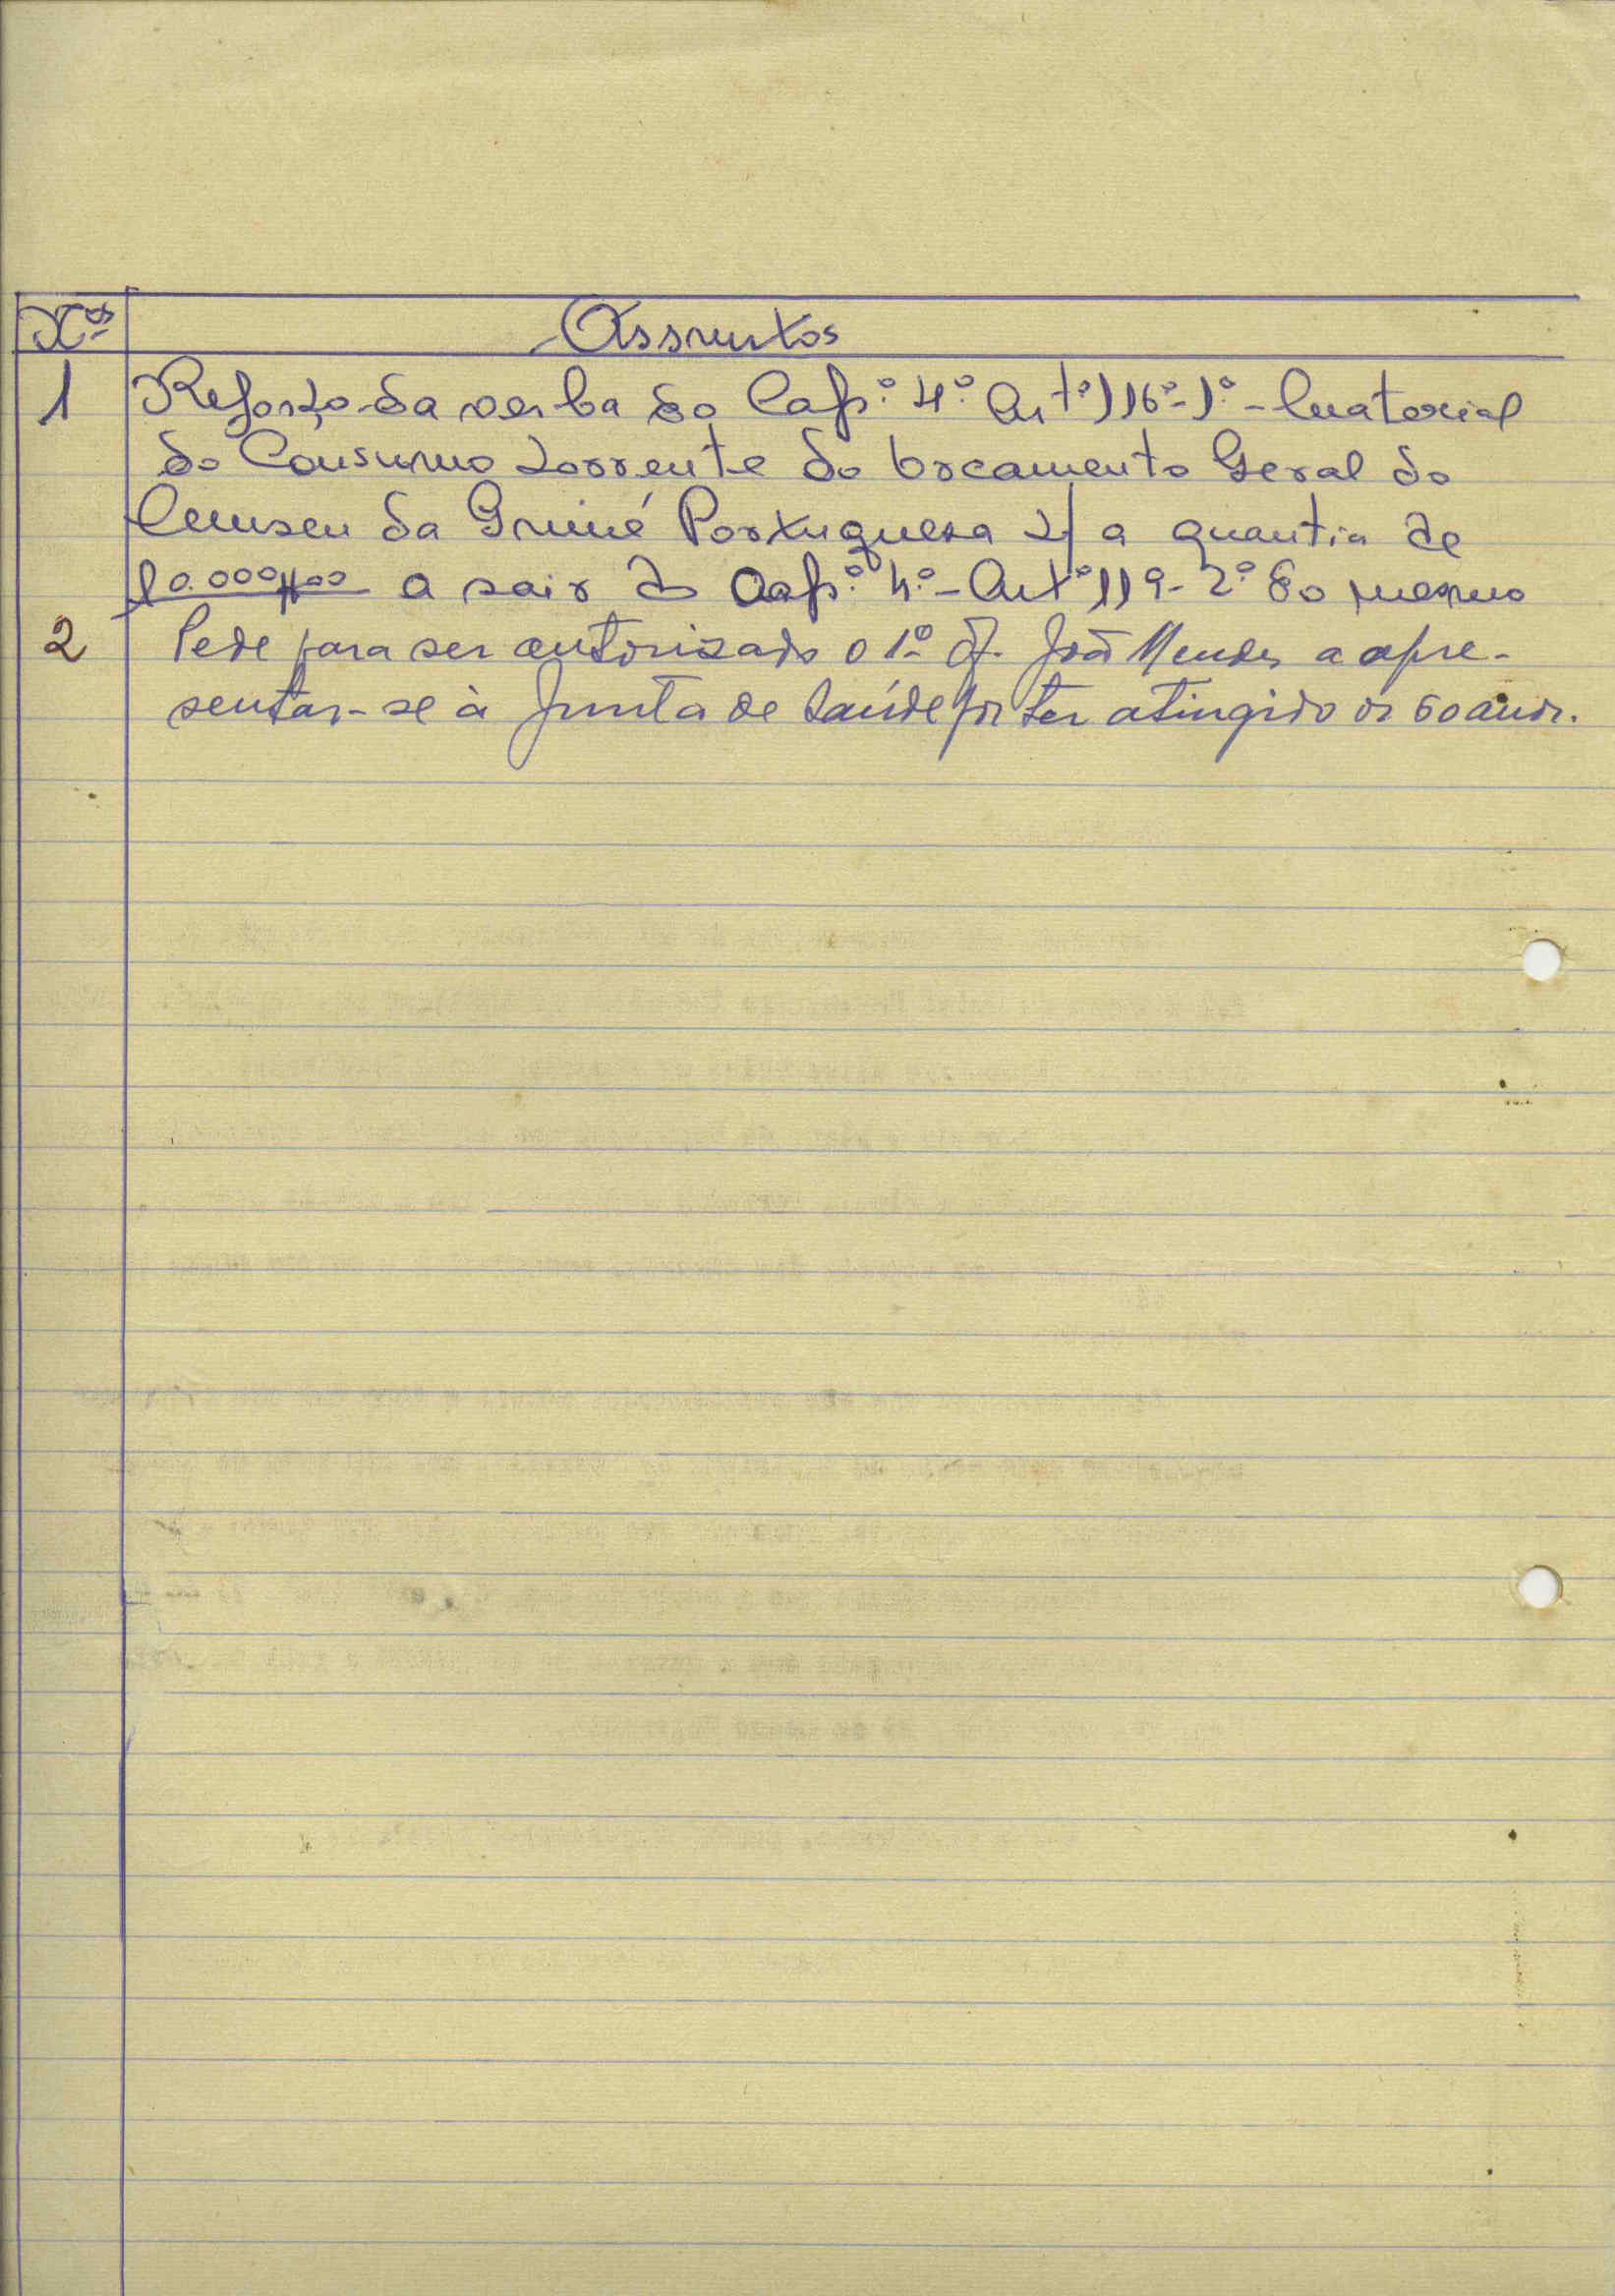 Nºs Assuntos
1 Reforço da verba do Capº. 4º. Artº 116º-1º - Material
do Consumo Corrente do Orcamento Geral do
Museu da Guiné Portuguesa c/ a quantia de
10.000$00 a sair do Capº. 4º. - Artº 119-2º do mesmo
2 Pede para ser autorizado o 1º Of. João Mendes a apre-
sentar-se à Junta de Saúde por ter atingido os 60 anos.